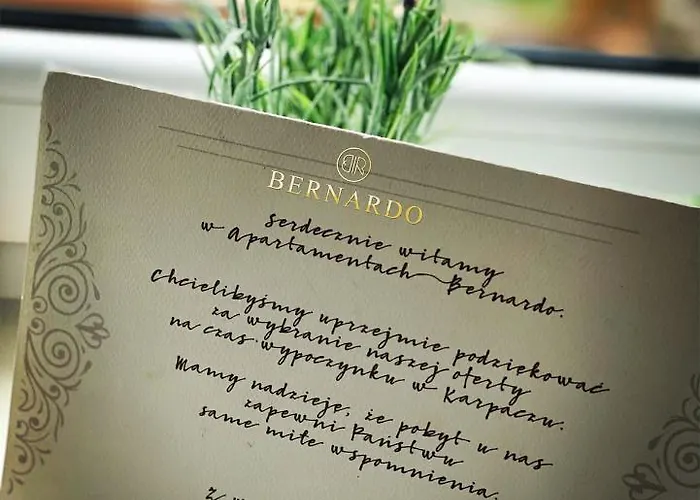 BR
BERNARDO
serdecznie witamy
w Apartamentach Bernardo.
Chcielibyśmy uprzejmie podziękować
za wybranie naszej oferty
na czas wypoczynku w Karpaczu.
Mamy nadzieję, że pobyt u nas
zapewni Państwu
same miłe wspomnienia.